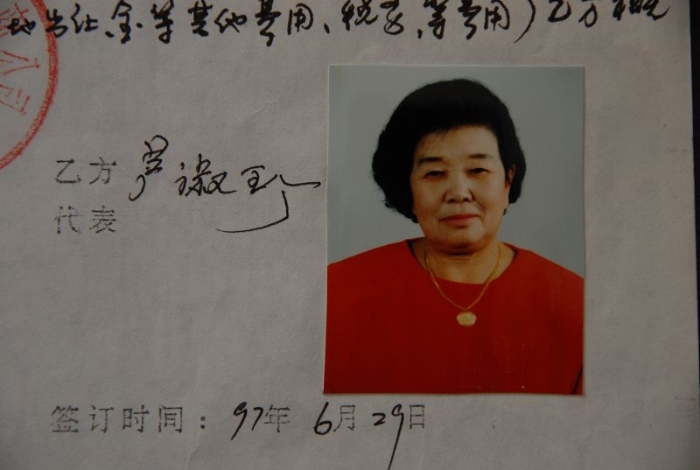 地出让金等其他费用、税务、等费用)乙方概
公司
乙方 淑珍
代表
签订时间：97年 6月 29日